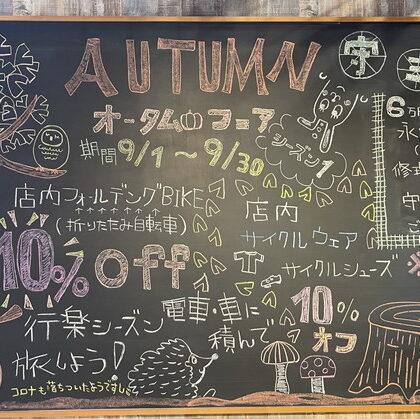 AUTUMN
オータムフェア
期間 9/1〜9/30
シーズン1
店内フォールディングBIKE
(折りたたみ自転車)
10% off
店内
サイクルウェア
サイクルシューズ
10%
オフ
行楽シーズン
電車・車に
積んで
旅しよう!
コロナも落ちついたようですし
守
6
修理
守